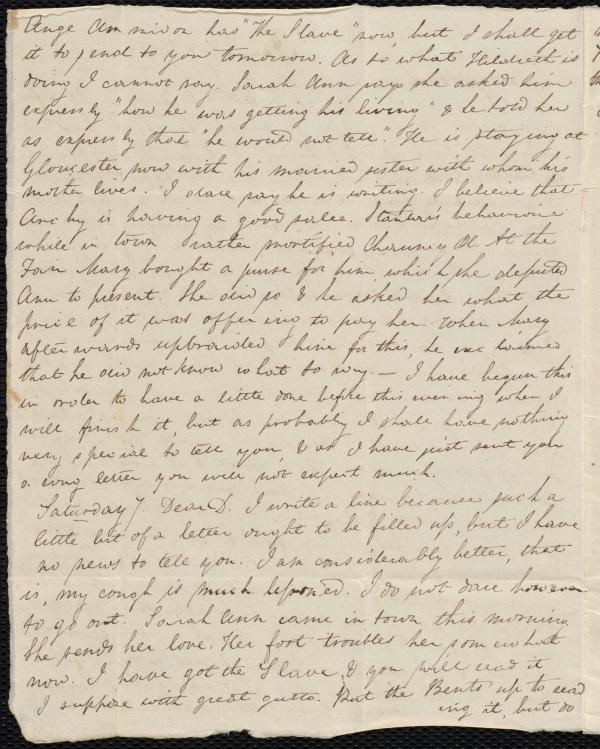 Ange Ammidon has "The Slave" now, but I shall get
it to send to you tomorrow. As to what Hildreth is
doing I cannot say. Sarah Ann says she asked him
expressly "how he was getting his living" & he told her
as expressly that "he would not tell". He is staying at
Gloucester now with his married sister with whom his
mother lives. I dare say he is writing. I believe that
Archy is having a good sale. Stanton's behaviour
while in town rather mortified Chauncy H. At the
Fair Mary bought a purse for him, which she deputed
Ann to present. She did so & he asked her what the
price of it was offering to pay her. When Mary
afterwards upbraided him for this, he exclaimed
that he did not know what to say. — I have begun this
in order to have a little done before this evening when I
will finish it, but as probably I shall have nothing
very special to tell you, & as I have just sent you
a long letter you will not expect much.
Saturday 7. Dear D. I write a line because such a
little bit of a letter ought to be filled up, but I have
no news to tell you. I am considerably better, that
is, my cough is much lessened. I do not dare however
to go out. Sarah Ann came in town this morning.
She sends her love. Her foot troubles her somewhat
now. I have got the Slave, & you will read it
I suppose with great gusto. Put the Bents up to read
ing it, but do